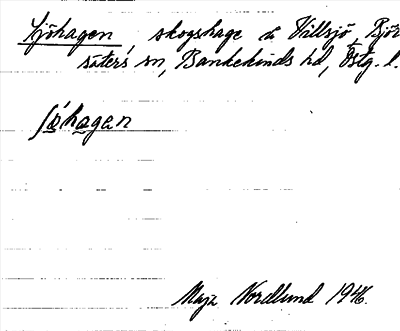 Sjöhagen skogshage å Villsjö, Björ
säters sn, Bankekinds hd, Östg. l.
ʃö́hagen
Maja Nordlund 1946.